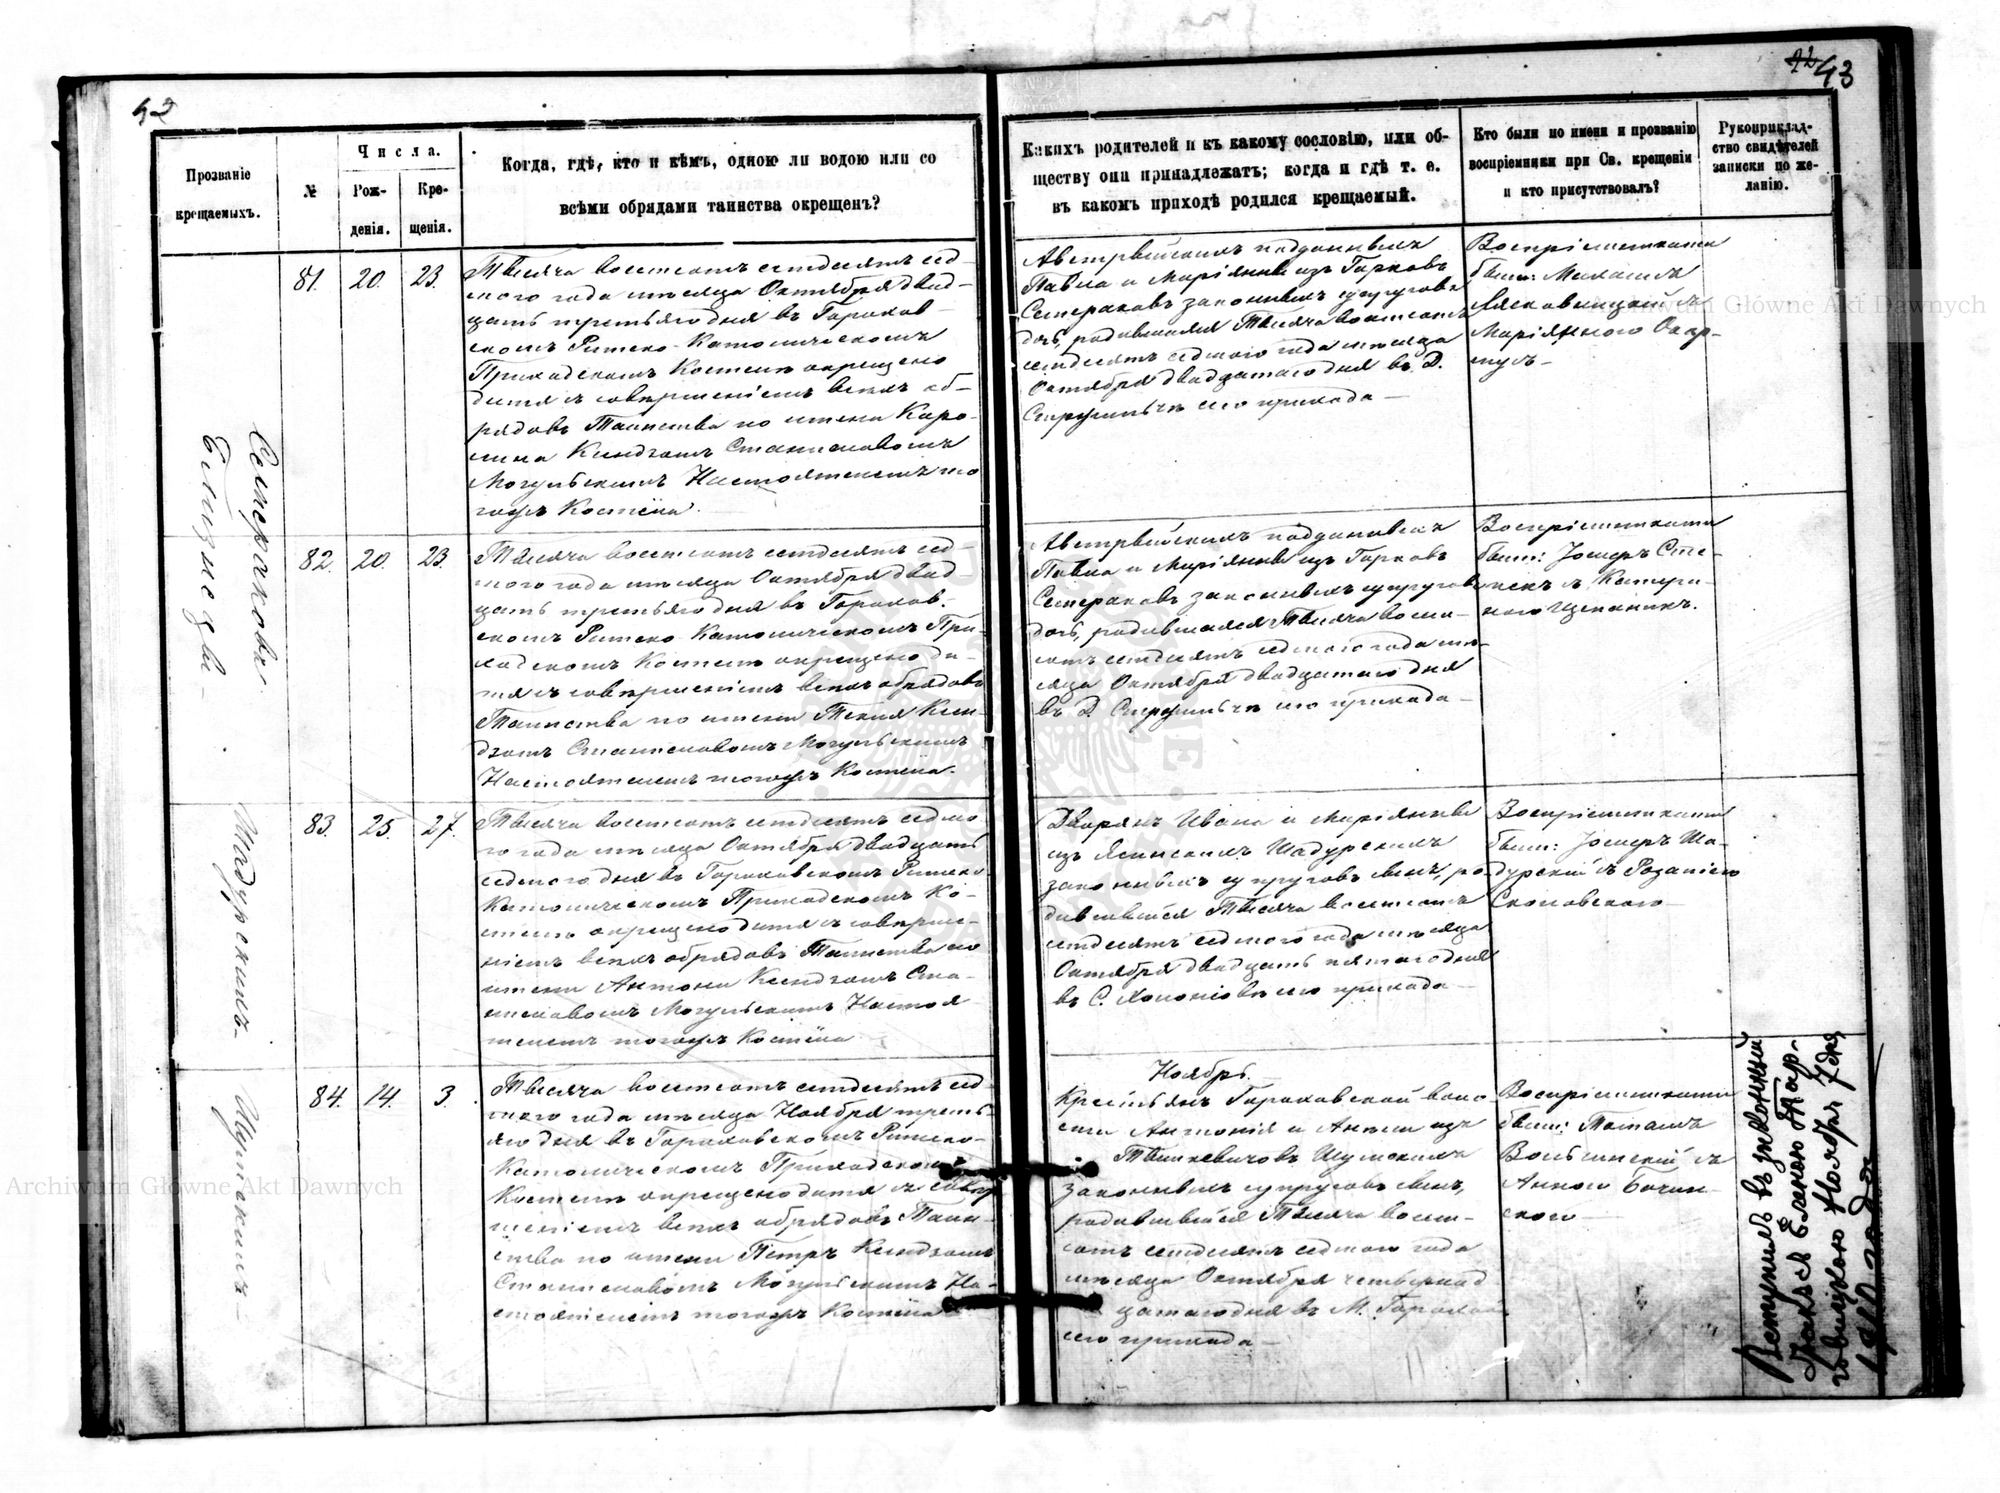 42
Прозваніе
крещаемыхъ.
№
Числа.
Рож-
денія.
Кре-
щенія.
Когда, гдѣ, кто и кѣмъ, одною ли водою или со
всѣми обрядами таинства окрещенъ?
Семраковы
Близнецы
81.
20.
23.
Тысяча восемсотъ семдесятъ сед-
мого года мѣсяца Октября двад-
цать третьяго дня въ Горохов-
скомъ Римско-Католическомъ
Приходскомъ Костелѣ окрещено
дитя съ совершеніемъ всѣхъ об-
рядовъ Таинства по имени Каро-
лина Ксіендзомъ Станиславомъ
Могульскимъ Настоятелемъ то
гожъ Костела.
82.
20.
23.
Тысяча восемсотъ семдесятъ сед-
мого года мѣсяца Октября двад-
цать третьяго дня въ Горохов-
скомъ Римско-Католическомъ При-
ходскомъ Костелѣ окрещено ди-
тя съ совершеніемъ всѣхъ обрядовъ
Таинства по имени Текля Ксен-
дзомъ Станиславомъ Могульскимъ
Настоятелемъ тогожъ Костела.
Шадурскихъ
83.
25.
27.
Тысяча восемсотъ семдесятъ седмо
го года мѣсяца Октября двадцать
седмого дня въ Гороховскомъ Римско
Католическомъ Приходскомъ Ко-
стелѣ окрещено дитя съ соверше-
ніемъ всѣхъ обрядовъ Таинства по
имени Антони Ксендзомъ Ста-
ниславомъ Могульскимъ Настоя
телемъ тогожъ Костела
Шумскихъ
84.
14.
3.
Тысяча восемсотъ семдесятъ сед-
мого года мѣсяца Ноября треть-
яго дня въ Гороховскомъ Римско-
Католическомъ Приходскомъ
Костелѣ окрещено дитя съ совер
шеніемъ всѣхъ обрядовъ Таин-
ства по имени Петръ Ксендзомъ
Станиславомъ Могульскимъ На-
стоятелемъ тогожъ Костела
43
Какихъ родителей и къ какому сословію, или об-
ществу они принадлежатъ; когда и гдѣ т. е.
въ какомъ приходѣ родился крещаемый.
Кто были по имени и прозванію
воспріемники при Св. крещеніи
и кто присутствовалъ?
Рукоприклад-
ство свидѣтелей
записки по же-
ланію.
Австрійскихъ подданныхъ
Павла и Маріянны изъ Горковъ
Семраковъ законныхъ супруговъ
дочь, родившаяся Тысяча восемсотъ
семдесятъ седмого года мѣсяца
Октября двадцатого дня въ Д.
сего прихода
Воспріемниками
были: Михаилъ
съ
Маріянною
Австрійскихъ подданныхъ
Павла и Маріянны изъ Горковъ
Семраковъ законныхъ супруговъ
дочь, родившаяся Тысяча восем-
сотъ семдесятъ седмого года мѣ-
сяца Октября двадцатого дня
въ Д. сего прихода
Воспріемниками
были: Іосифъ Сте-
пекъ съ Катари-
ною Щепаникъ.
Дворянъ Ивана и Маріянны
изъ Ясинскихъ Шадурскихъ
законныхъ супруговъ сынъ, ро
дившійся Тысяча восемсотъ
семдесятъ седмого года мѣсяца
Октября двадцать пятого дня
въ С. Холоніовѣ сего прихода
Воспріемниками
были: Іосифъ Ша-
дурскій съ Розаліею
Ноябрь.
Крестьянъ Гороховской воло
сти Антонія и Анели изъ
Тышкевичовъ Шумскихъ
законныхъ супруговъ сынъ,
родившійся Тысяча восем-
сотъ семдесятъ седмого года
мѣсяца Октября четырнад
цатого дня въ М. Гороховѣ
сего прихода
Воспріемниками
были: Потапъ
Волынскій съ
Анною
Вступилъ въ законный
бракъ съ Еленою
Ноября 7 дня
года
Archiwum Główne Akt Dawnych
Archiwum Główne Akt Dawnych